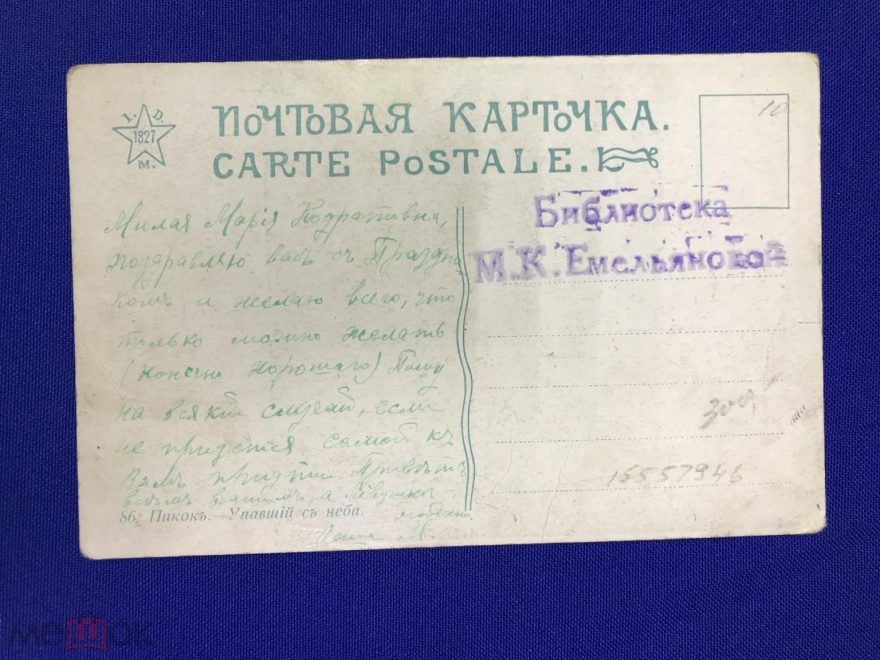 I. D.
1827
M.
ПОЧТОВАЯ КАРТОЧКА.
CARTE POSTALE.
10
Библиотека
М.К.Емельяновой
Милая Марія Кодративна,
поздравляю Васъ съ Праздни
комъ и желаю всего, что
только можно желать
(конечно, хорошаго) Пишу
на всякій случай, если
не придется самой къ
Вамъ придти Привѣтъ
всѣмъ вашимъ, а Лёвушке
особенно
86: Пикокъ.—Упавшій съ неба.
М.
300
16557946
мешок